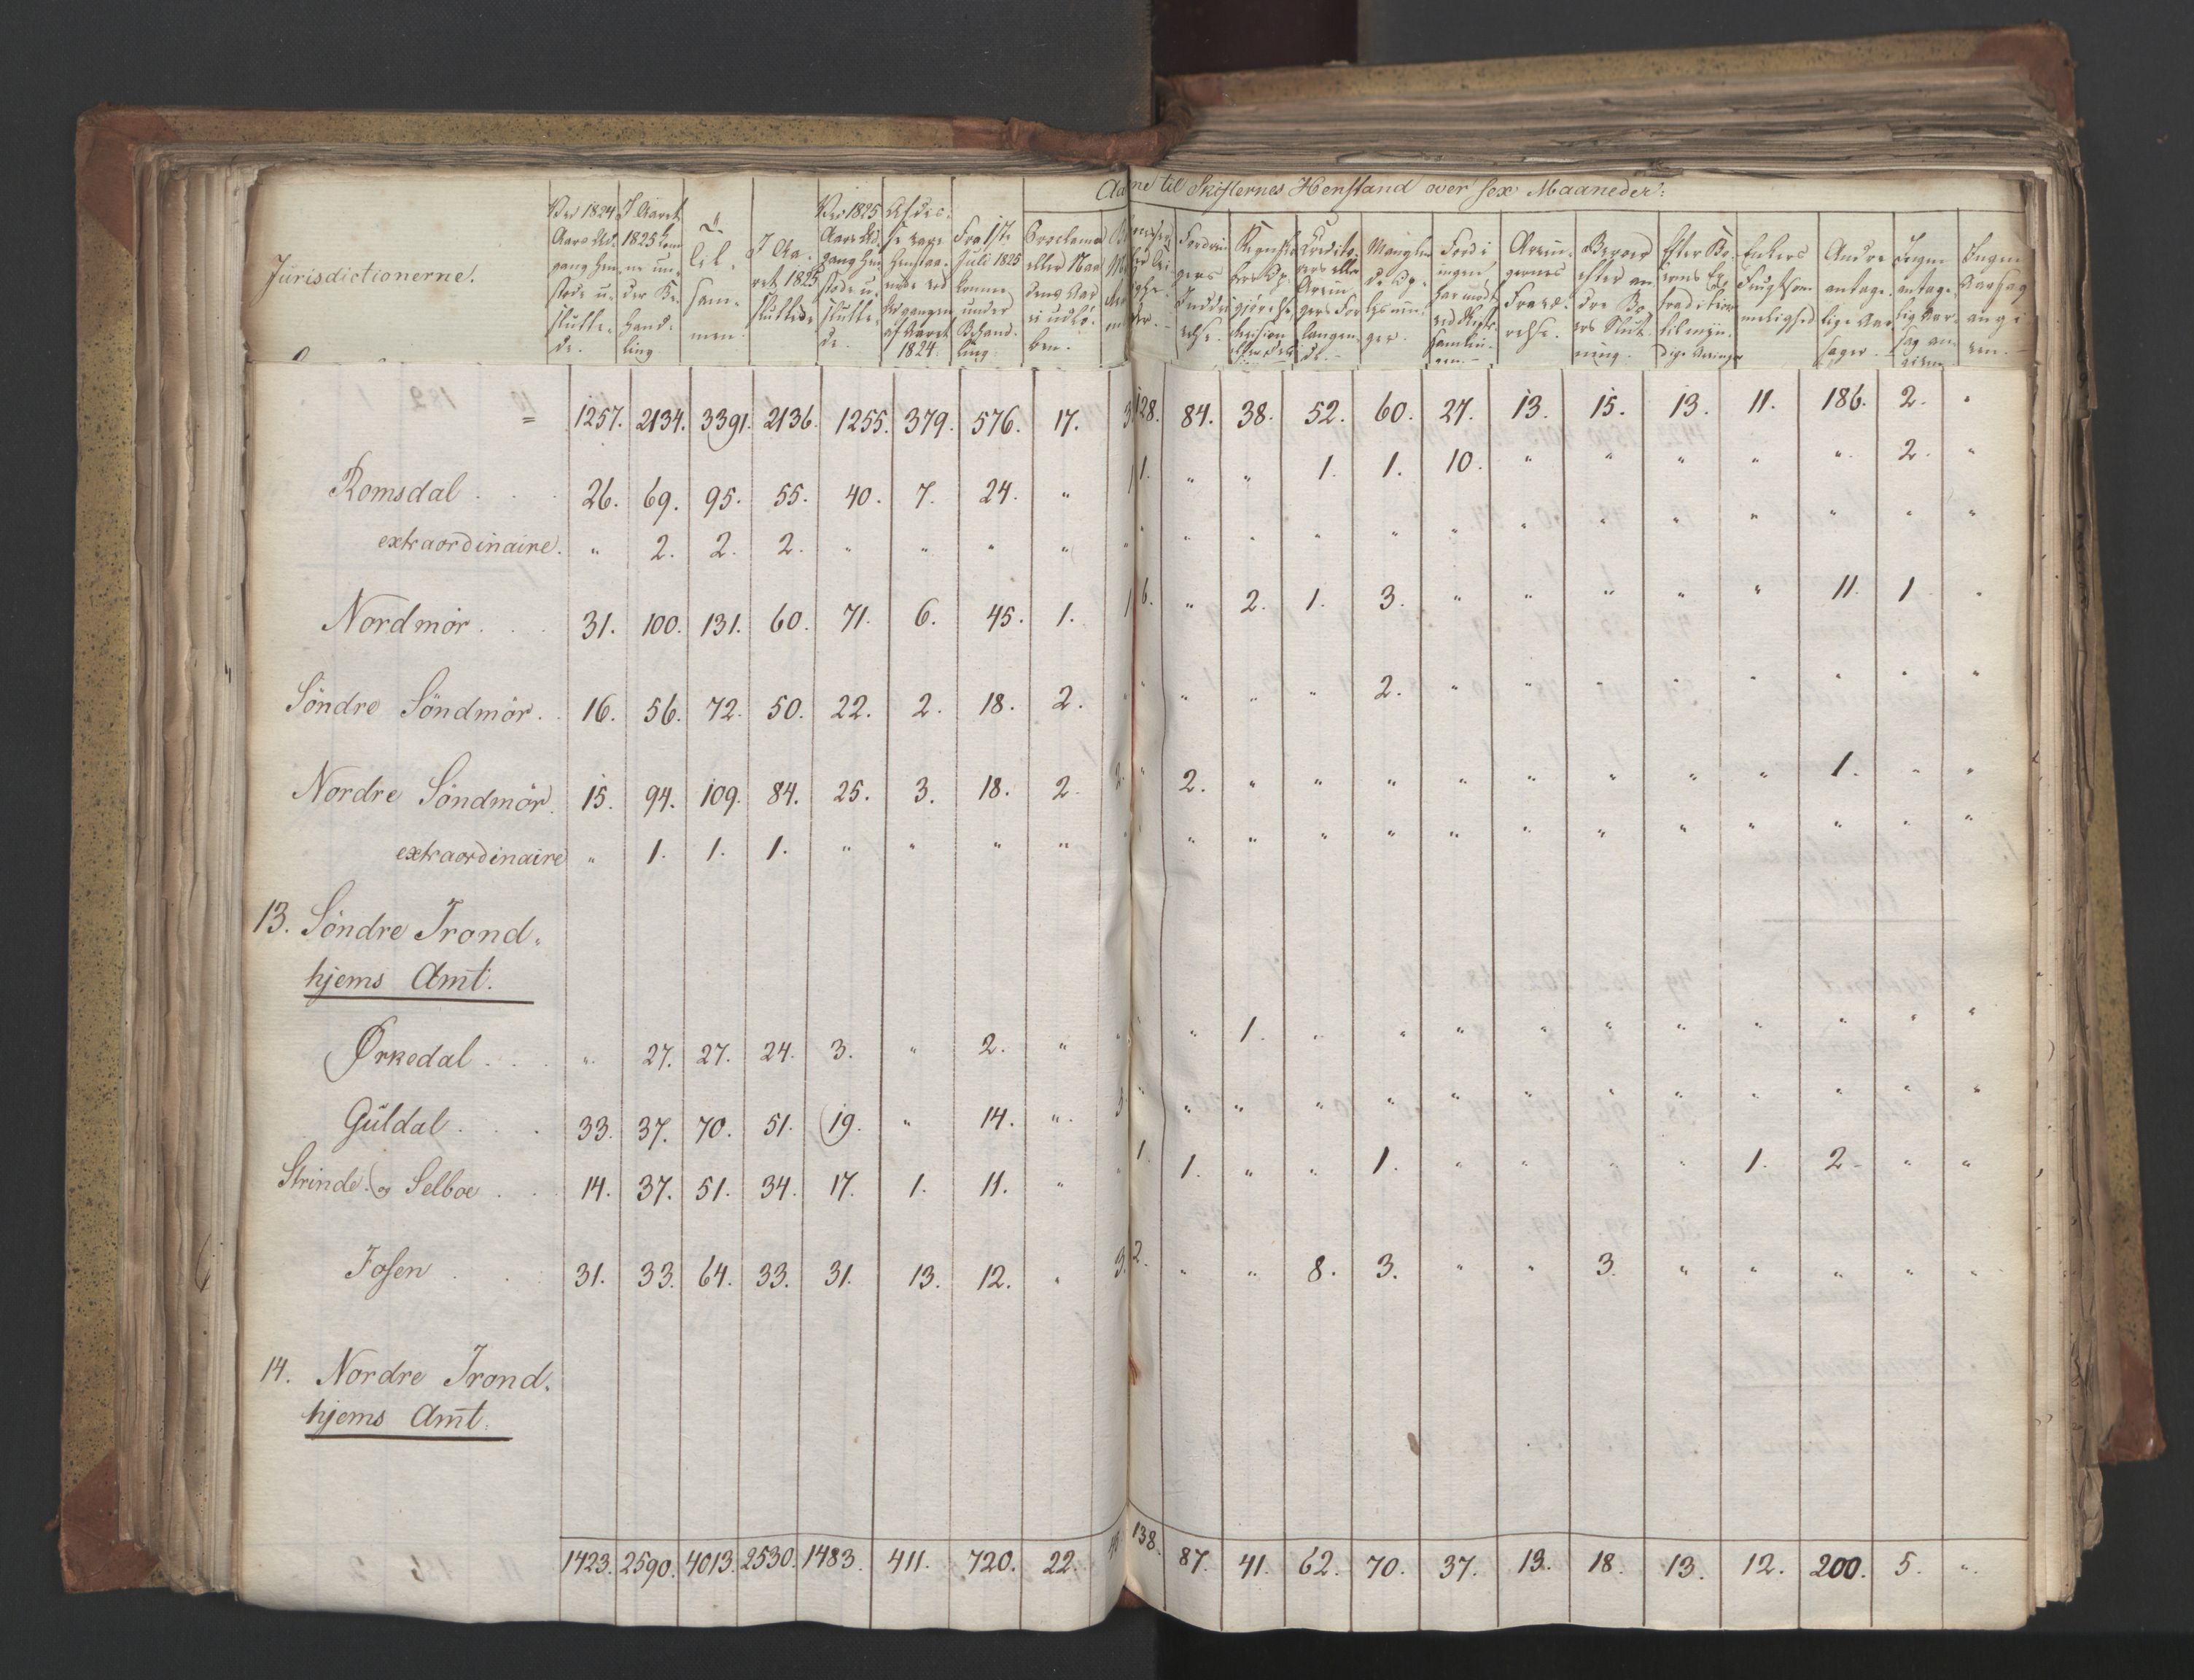 Aarsagerne til Skifternes Henstand over sex Maaneder:
Jurisdictionerne.
Ved 1824 Aars Ud- gang hen- stode u- slutte- de.
I Aaret 1825 kom- ne un- der Be- hand- ling.
Til- sam- men.
I Aa- ret 1825 sluttede
Ved 1825 Aars Ud- gang hen- stode u- slutte- de.
Af dis- se vare henstaa- ende ved Udgangen af Aaret 1824.
Fra 1ste Juli 1825 komne under Behand- ling.
Proclama eller Aar ei udlö- ben.
Fordrin- gers Inddri- velse.
Mangler de Op- lysnin- ger.
Arvin- gernes Fravæ- relse.
Beroer efter an- dre Bo- ers Slut- ning.
Enkers Frugtsom- melighed
Andre antage- lige Aar- sager.
Ingen antage- lig Aar- sag an- given
Ingen Aarsag angi- ven.
= 1257. 2134. 3391. 2136. 1255. 379. 576. 17. 128. 84. 38. 52. 60. 27. 13. 15. 13. 11. 186. 2. "
Romsdal . . . 26. 69. 95. 55. 40. 7. 24. " 1. " " 1. 1. 10. " " " " " 2. "
extraordinaire. " 2. 2. 2. " " " " " " " " " " " " " " " " "
Nordmör . . . 31. 100. 131. 60. 71. 6. 45. 1. 6. " 2. 1. 3. " " " " " 11. 1. "
Söndre Söndmör. 16. 56. 72. 50. 22. 2. 18. 2. " " " " 2. " " " " " " " "
Nordre Söndmör. 15. 94. 109. 84. 25. 3. 18. 2. 2. " 2. " " " " " " " " 1. " "
extraordinaire " 1. 1. 1. " " " " " " " " " " " " " " " " "
13. Söndre Trond-
hjems Amt.
Ørkedal . . . " 27. 27. 24. 3. " 2. " " " 1. " " " " " " " " " "
Güldal . . . 33. 37. 70. 51. 19. " 14. " 3. " " " " " " " " " " " " "
Strinde og Selboe . . 14. 37. 51. 34. 17. 1. 11. " " 1. 1. " " 1. " " " " 1. 2. " "
Fosen . . 31. 33. 64. 33. 31. 13. 12. " 3. 2. " " 8. 3. " " 3. " " " " "
14. Nordre Trond-
hjems Amt.
1423. 2590. 4013. 2530. 1483. 411. 720. 22. 138. 87. 41. 62. 70. 37. 13. 18. 13. 12. 200. 5. "